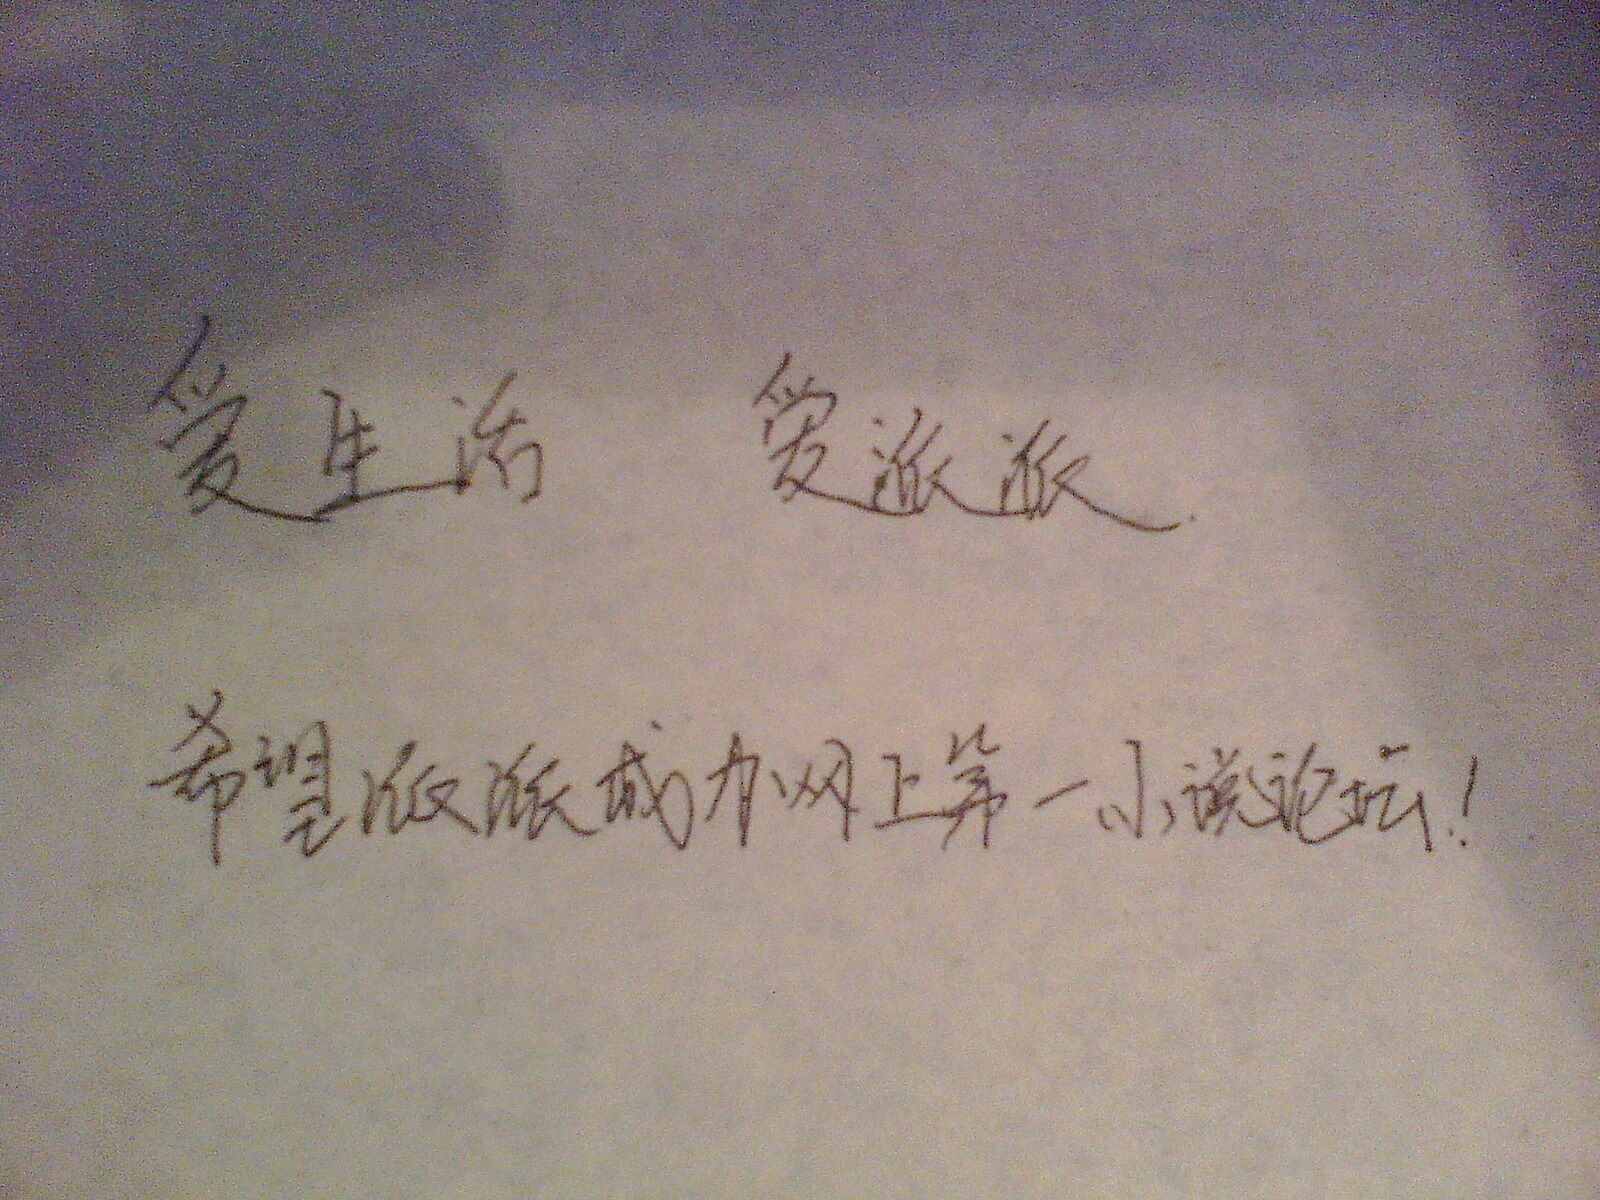 爱生活 爱派派.
希望派派成为网上第一小说论坛!